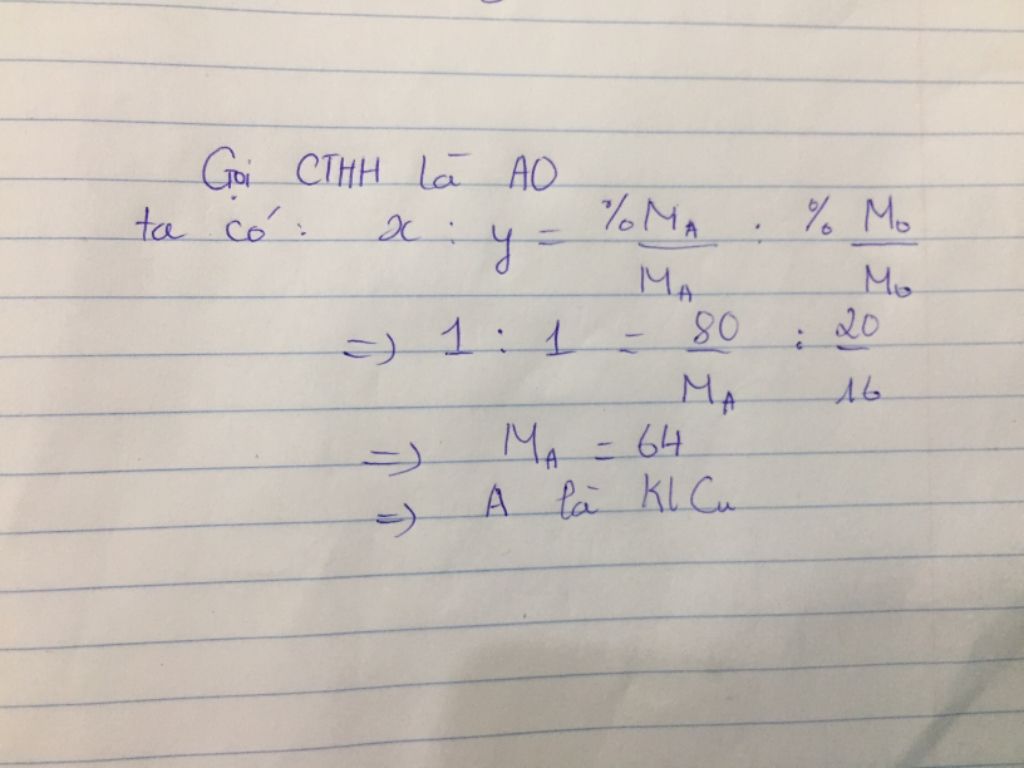 Gọi CTHH là AO
ta có: x : y = %MA/MA : %MO/MO
=> 1 : 1 = 80/MA : 20/16
=> MA = 64
=> A là Kl Cu